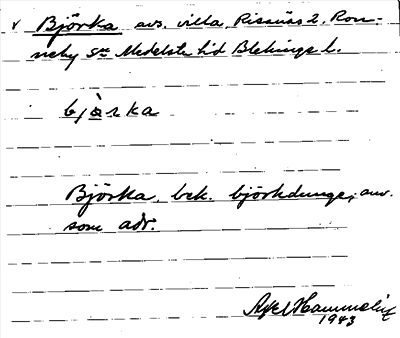 v Björka avs. villa, Risanäs 2, Ron-
neby sn Medelsta hd Blekinge l.
bjòrka
Björka, bet. björkdunge; anv.
som adr.
Axel Hammelin
1943